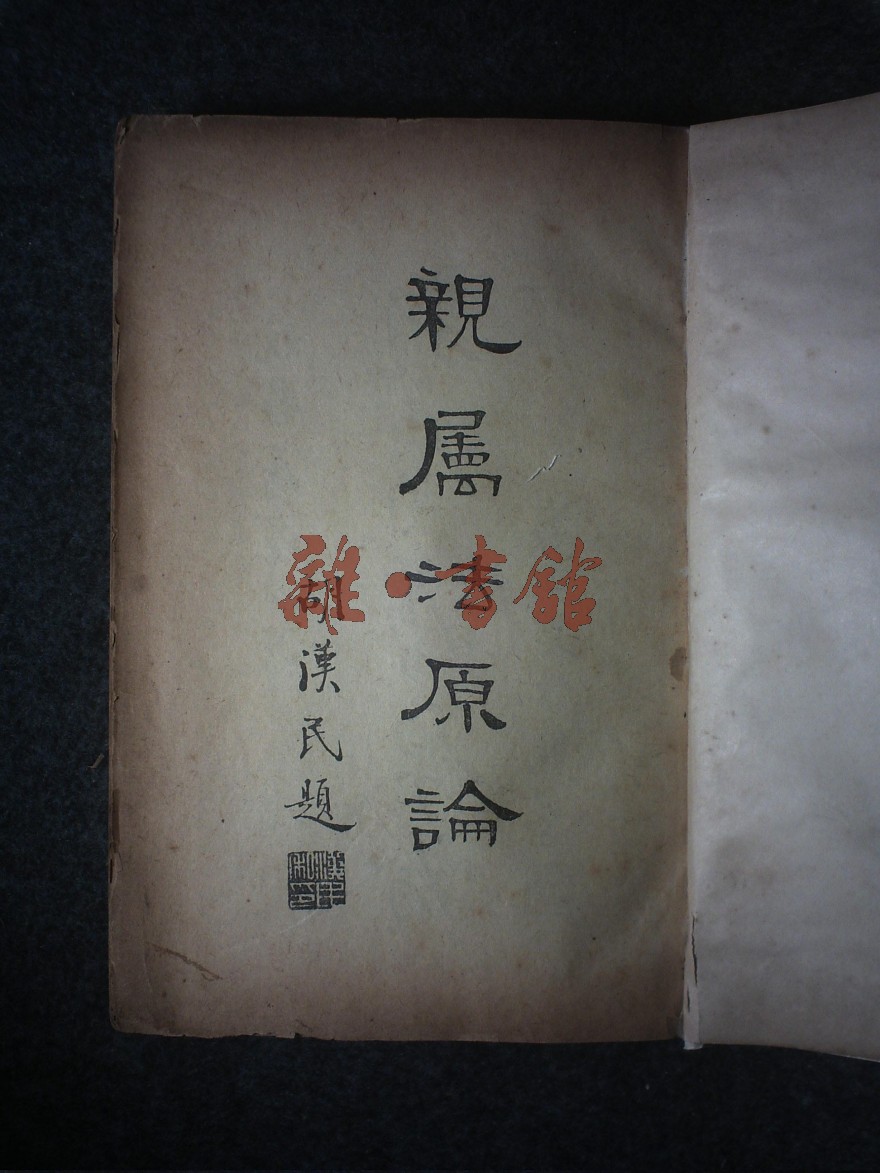 親属法原論
胡漢民題
雜·書館